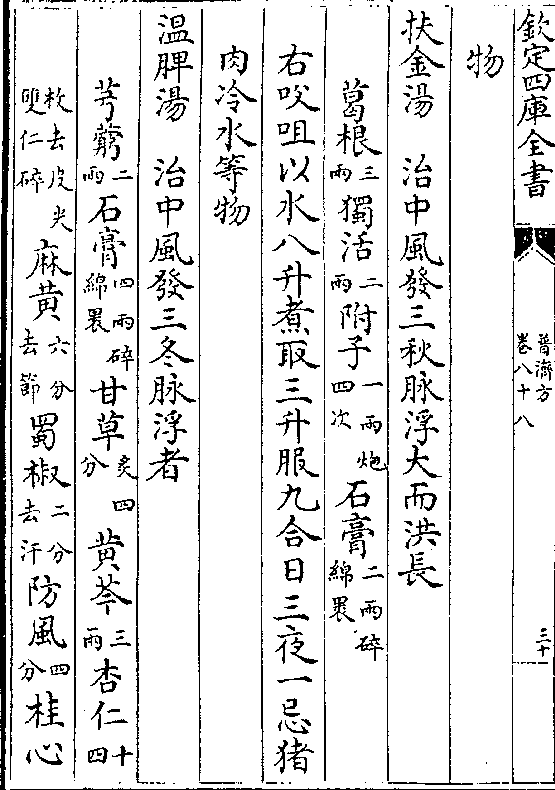 欽定四庫全書
普濟方
卷八十八
三十
物
扶金湯　治中風發三秋脉浮大而洪長
葛根三兩獨活二兩附子一兩炮四次石膏二兩碎綿裹
右㕮咀以水八升煮取三升服九合日三夜一忌猪
肉冷水等物
溫脾湯　治中風發三冬脉浮者
芎藭二兩石膏四兩碎綿裹甘草炙四分黄芩三兩杏仁十四
枚去皮尖雙仁碎麻黄六分去節蜀椒二分去汗防風四分桂心